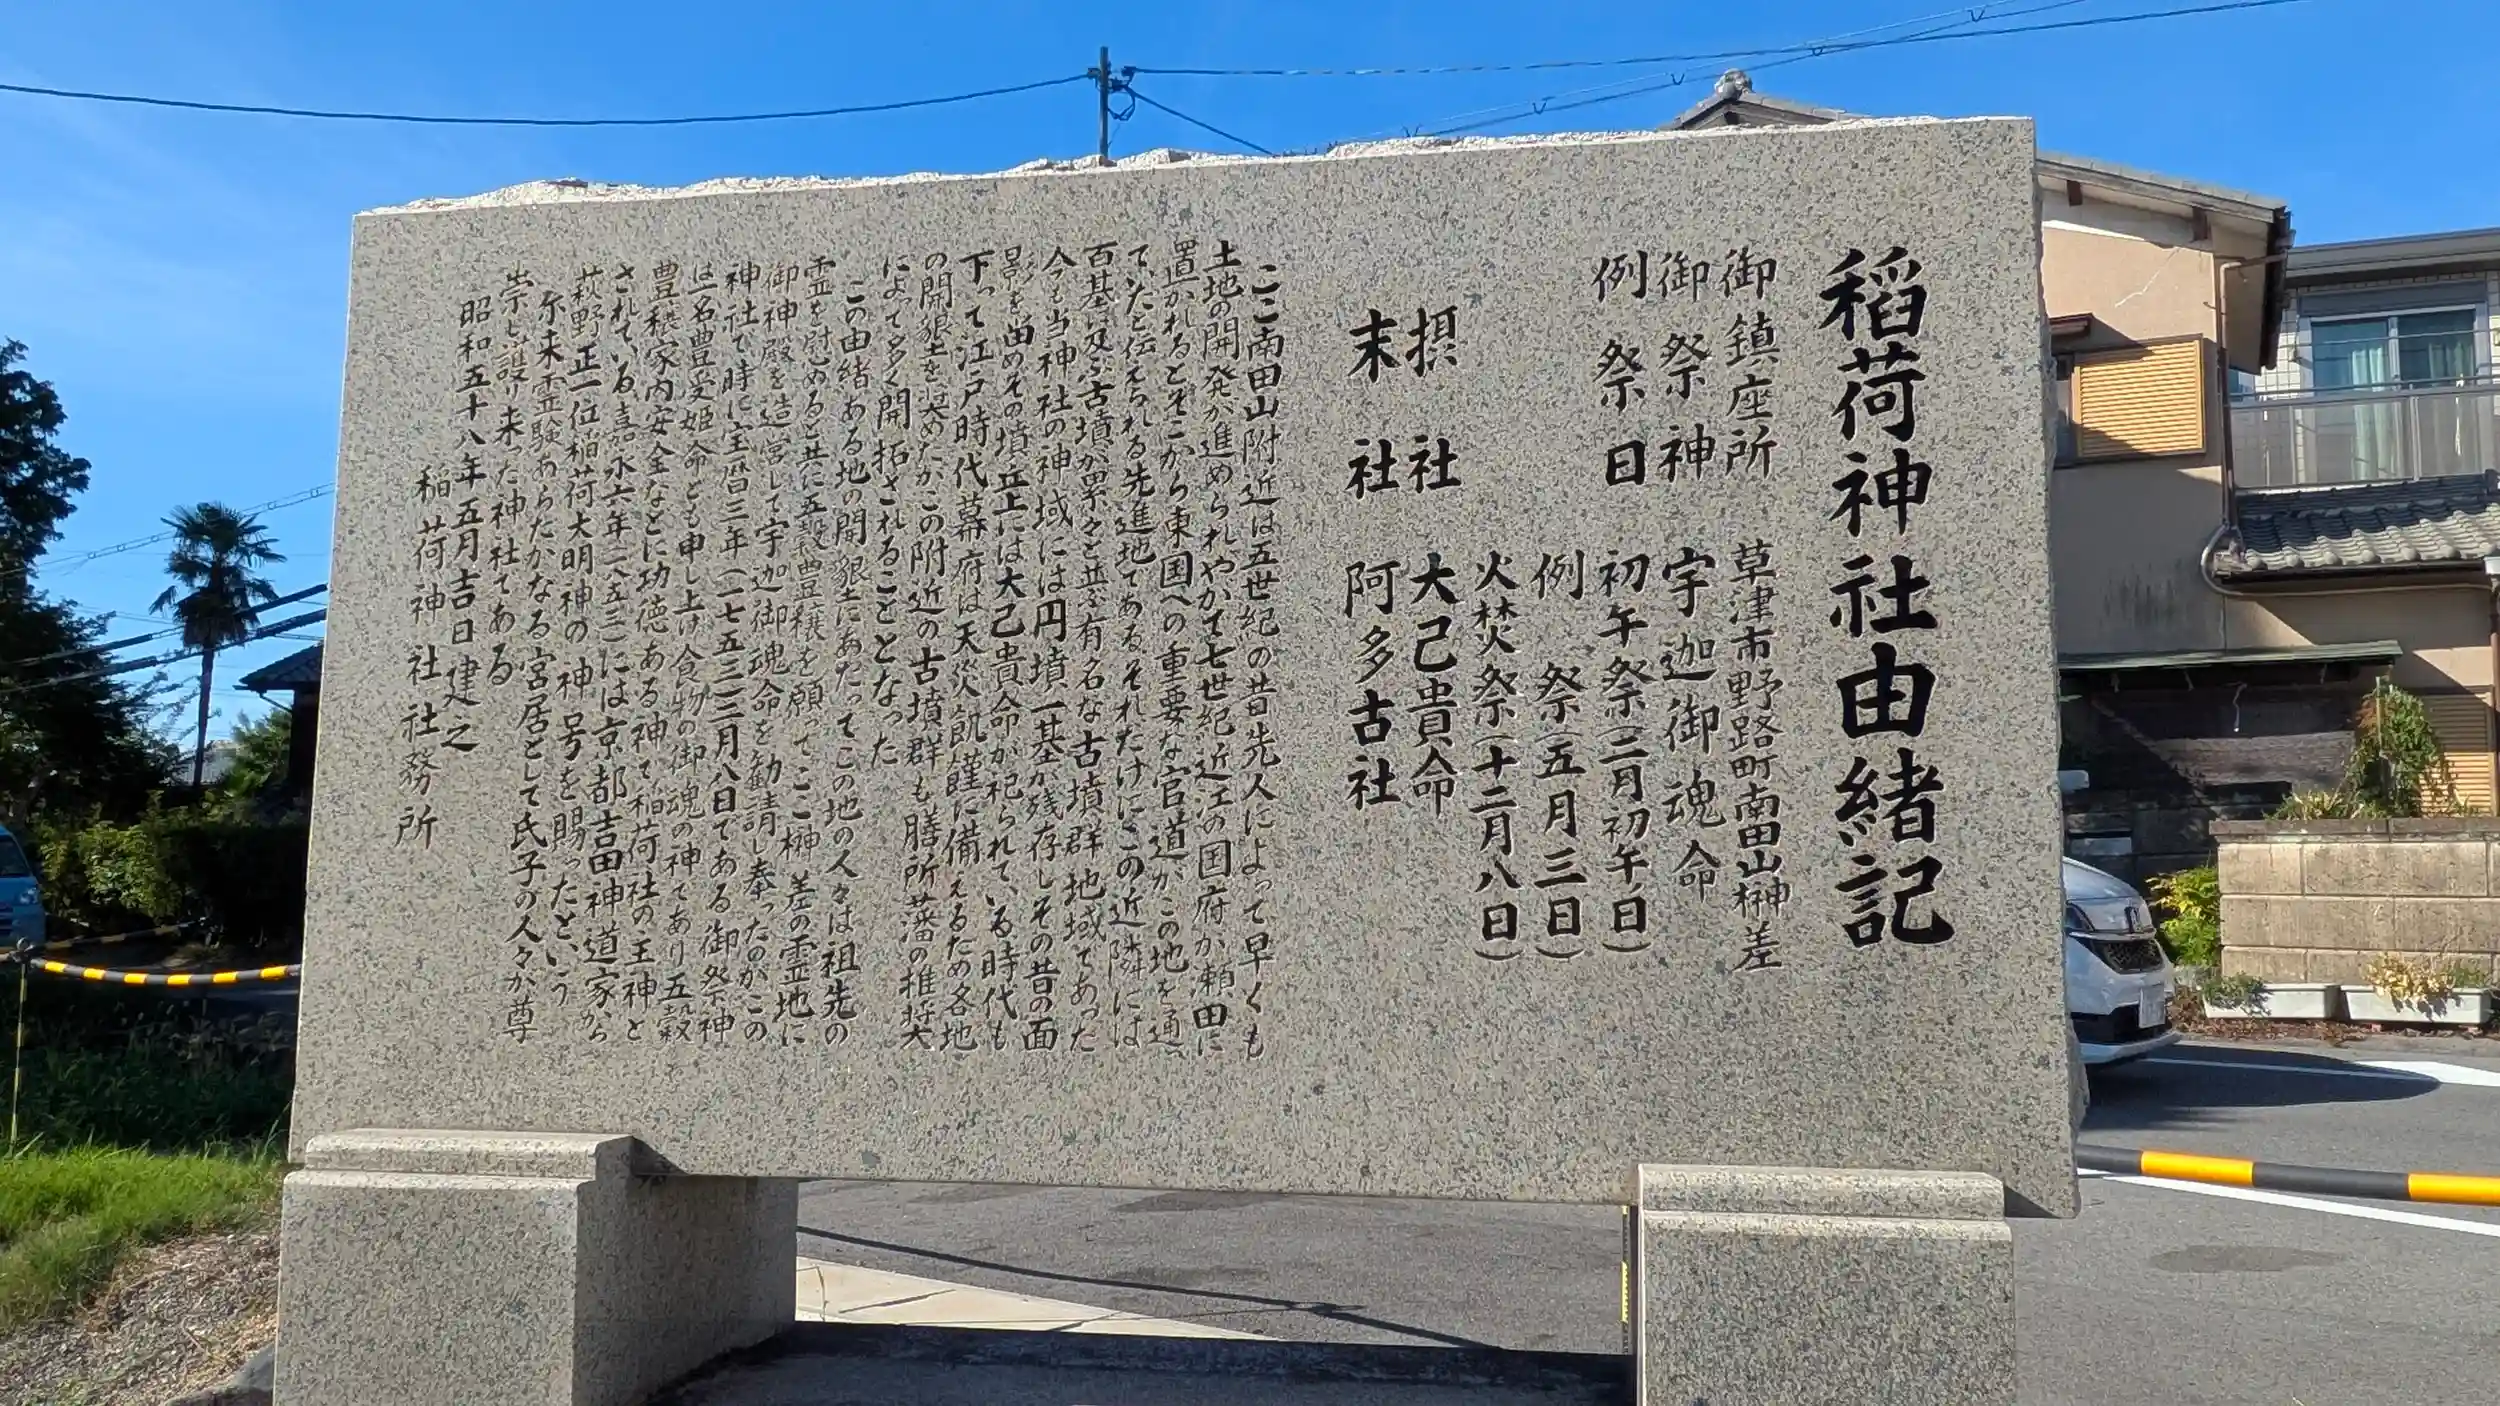 稲荷神社由緒記
御鎮座所 草津市野路町南田山榊差
御祭神 宇迦御魂命
例祭日 初午祭(二月初午日)
例祭(五月三日)
火焚祭(十二月八日)
摂社 大己貴命
末社 阿多古社
ここ南田山附近は五世紀の昔先人によって早くも
土地の開発が進められやがて七世紀近江の国府が瀬田に
置かれるとそこから東国への重要な官道がこの地を通っ
ていたと伝えられる先進地であるそれだけにこの近隣には
百基に及ぶ古墳が累々と並ぶ有名な古墳群地域であった
今も当神社の神域には円墳一基が残存しその昔の面
影を留めその墳丘上には大己貴命が祀られている時代も
下って江戸時代幕府は天災飢饉に備えるため各地
の開懇を奨めたがこの附近の古墳群も膳所藩の推奨
によって多く開拓されることとなった
この由緒ある地の開懇にあたってこの地の人々は祖先の
霊を慰めると共に五穀豊穣を願ってここ榊差の霊地に
御神殿を造営して宇迦御魂命を勧請し奉ったのがこの
神社で時に宝暦三年(一七五三)二月八日である御祭神
は一名豊受姫命とも申し上げ食物の御魂の神であり五穀
豊穣家内安全などに功徳ある神で稲荷社の王神と
されている嘉永六年(一八五三)には京都吉田神道家から
萩野正一位稲荷大明神の神号を賜ったという
尓来霊験あらたかなる宮居として氏子の人々が尊
崇し護り来った神社である
昭和五十八年五月吉日建之
稲荷神社社務所